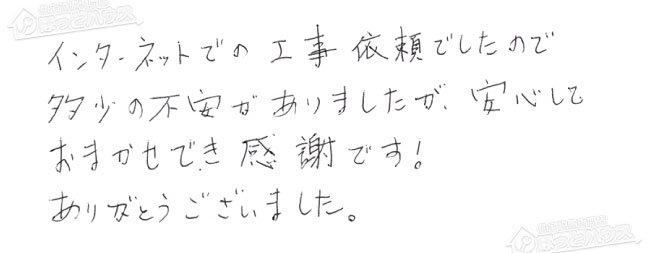 インターネットでの工事依頼でしたので
多少の不安がありましたが、安心して
おまかせでき感謝です！
ありがとうございました。